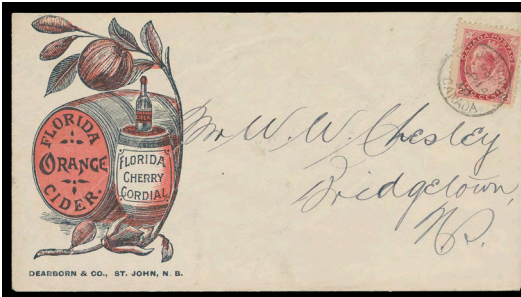 FLORIDA
ORANGE
CIDER.
FLORIDA
CHERRY
CORDIAL
DEARBORN & CO., ST. JOHN, N. B.
Mr W. W. Chesley
Bridgetown,
N.S.
CANADA